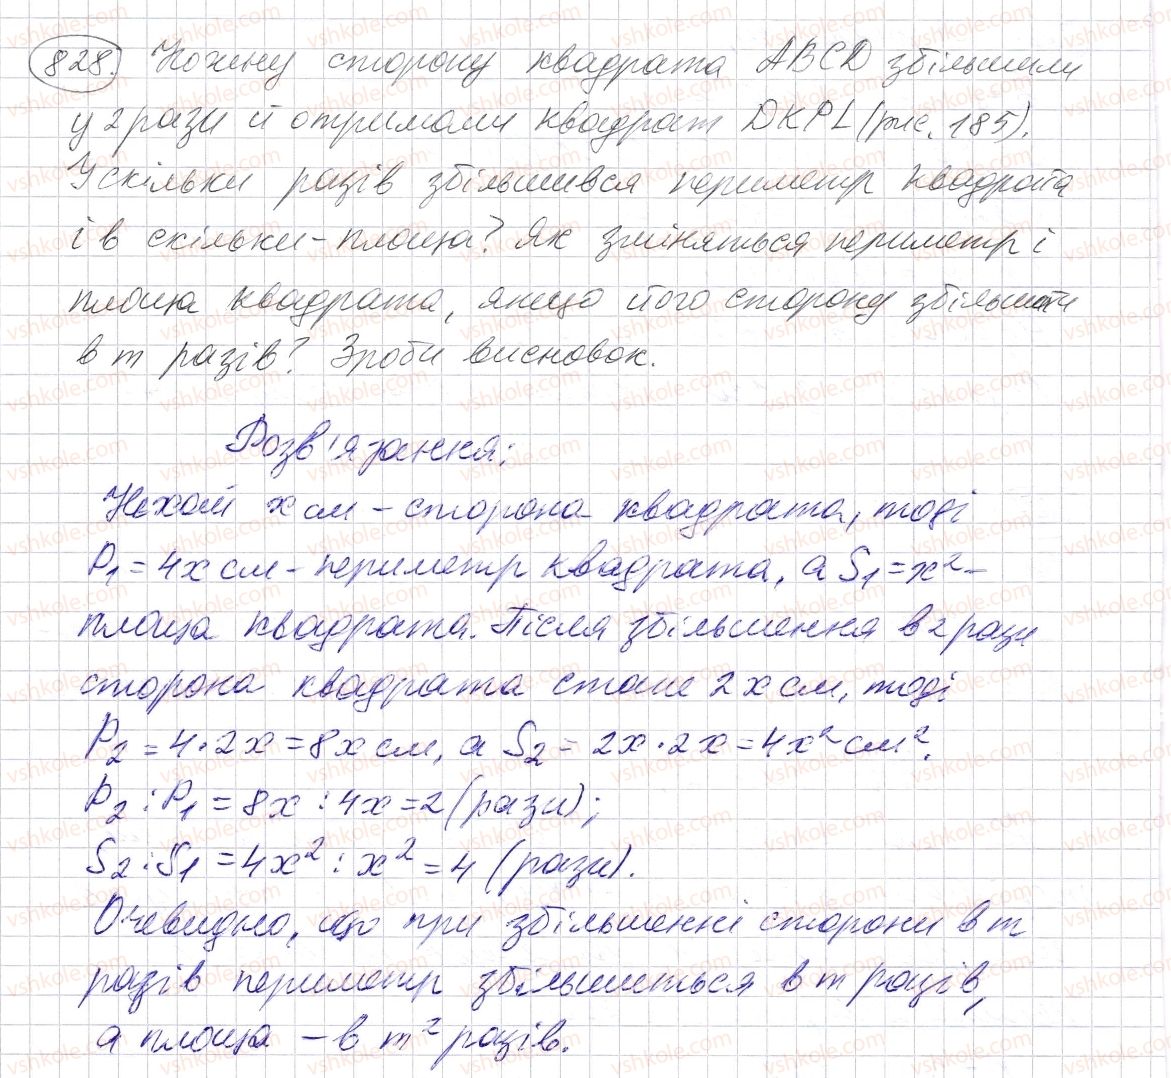 828. Кожну сторону квадрата ABCD збільшили
у 2 рази й отримали квадрат DKPL (рис. 185).
У скільки разів збільшився периметр квадрата
і в скільки - площа? Як зміняться периметр і
площа квадрата, якщо його сторону збільшити
в m разів? Зроби висновок.
Розв'язання:
Нехай x см - сторона квадрата, тоді
P₁ = 4x см - периметр квадрата, а S₁ = x² -
площа квадрата. Після збільшення в 2 рази
сторона квадрата стане 2x см, тоді
P₂ = 4 · 2x = 8x см, а S₂ = 2x · 2x = 4x² см².
P₂ : P₁ = 8x : 4x = 2 (рази);
S₂ : S₁ = 4x² : x² = 4 (рази).
Очевидно, що при збільшенні сторони в m
разів периметр збільшиться в m разів,
а площа - в m² разів.